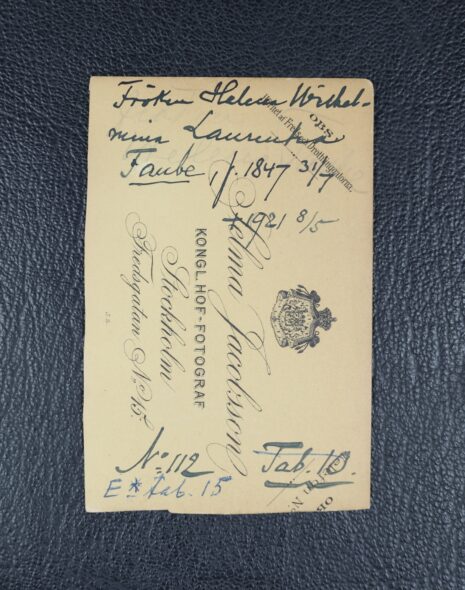 Fröken Helena Wilhel-
mina Laurentia
Taube, f. 1847 31/7
+ 1921 8/5
OBS.
Selma Jacobsson
KONGL. HOF-FOTOGRAF
Stockholm
Fredsgatan No 15.
J.S.
No 112
Tab. 13.
E* tab. 15